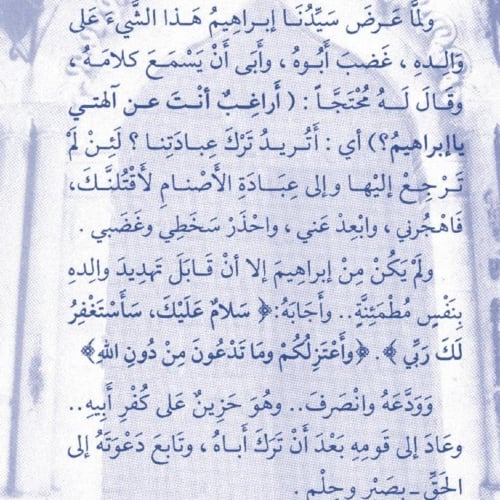 ولمَّا عَرَضَ سَيِّدُنَا إبراهِيمُ هَذا الشَّيءَ عَلى
وَالِدِهِ ، غَضبَ أَبُوهُ ، وأَبَى أَنْ يَسْمَعَ كلامَهُ ،
وقَالَ لَـهُ مُحْتَجَّاً : ( أَراغِبٌ أنْتَ عن آلهتي
ياإبراهيمُ؟) أي : أَتُريدُ تَرْكَ عِبادَتِنا ؟ لَئِنْ لَمْ
تَرْجِعْ إليْها وإلى عِبَادَةِ الأَصْنامِ لأَقْتُلنَّكَ،
فَاهْجُرني ، وابْعِدْ عَني ، واحْذَرْ سَخَطِي وغَضَبي .
ولَمْ يَكُنْ مِنْ إبراهِيمَ إلا أنْ قَابَلَ تَهدِيدَ والِدهِ
بِنَفْسٍ مُطْمَئِنَّةٍ.. وأجَابَهُ:﴿ سَلامٌ عَلَيْكَ، سَأَسْتَغْفِرُ
لَكَ رَبِّي ﴾ . ﴿وأَعْتَزِلُكُمْ ومَا تَدْعُونَ مِنْ دُونِ اللهِ﴾
وَوَدَّعَهُ وانْصَرفَ.. وهُوَ حَزِينٌ عَلى كُفْرِ أَبِيهِ..
وعَادَ إلى قَومِهِ بَعْدَ أَنْ تَركَ أَباهُ ، وتابَعَ دَعْوَتَهُ إلى
الحَقِّ ـ بِصَبْرٍ وحِلْمٍ .